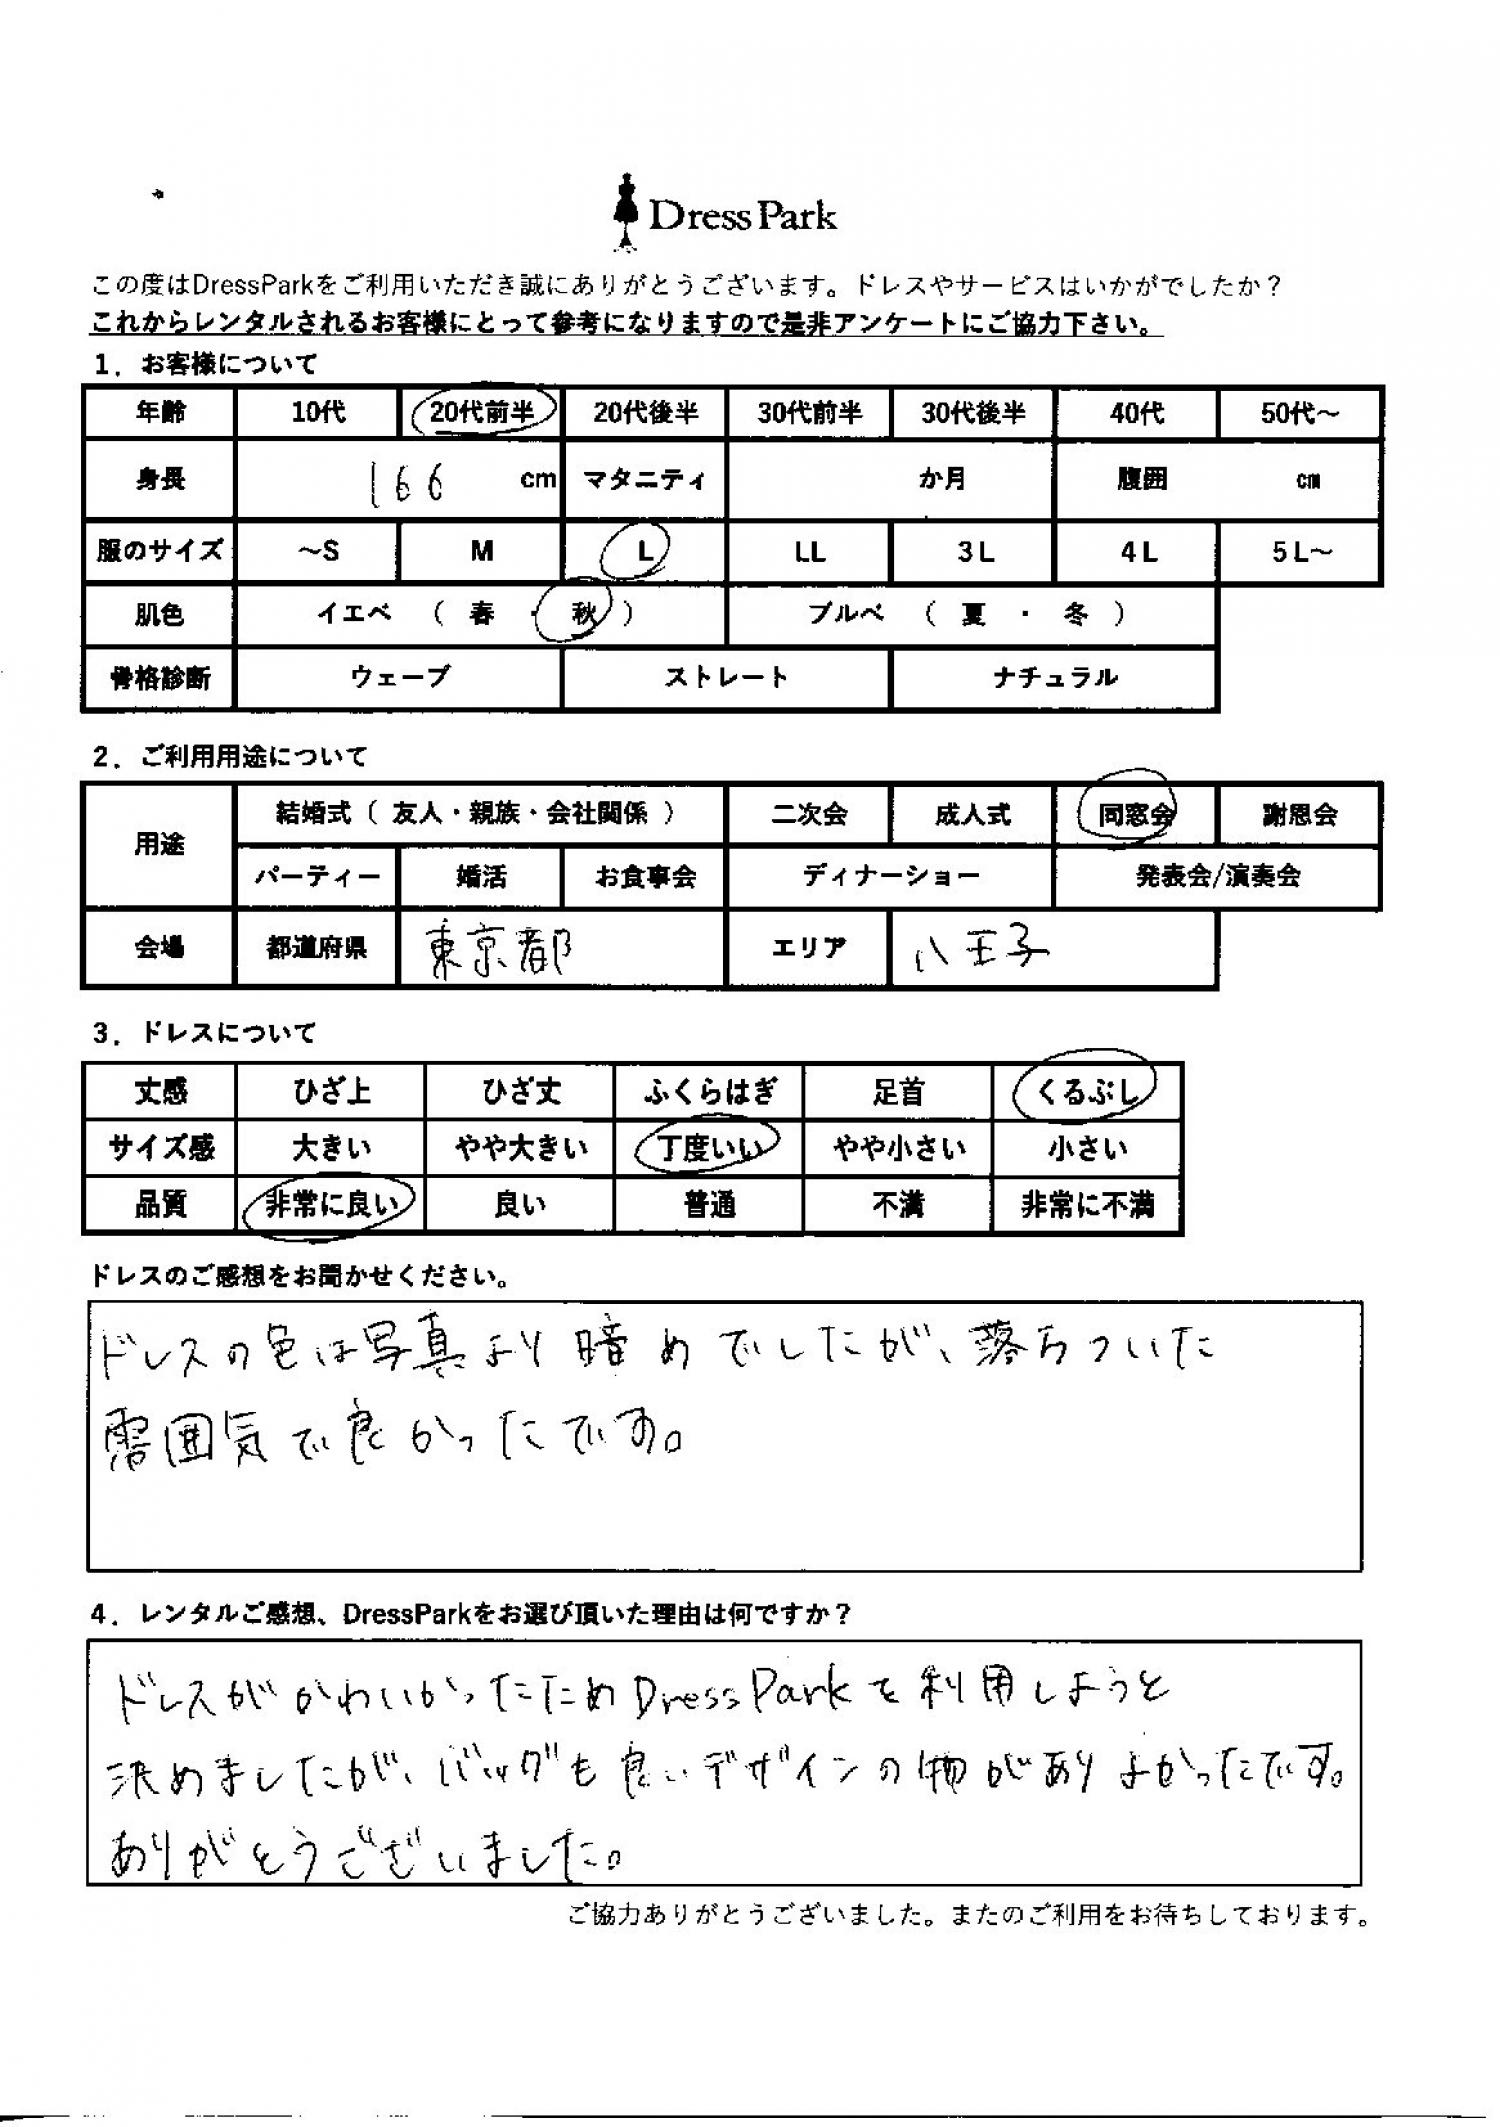 Dress Park
この度はDressParkをご利用いただき誠にありがとうございます。ドレスやサービスはいかがでしたか？
これからレンタルされるお客様にとって参考になりますので是非アンケートにご協力下さい。
1．お客様について
年齢 10代 20代前半 20代後半 30代前半 30代後半 40代 50代～
身長 166 cm マタニティ か月 腹囲 cm
服のサイズ ～S M L LL 3L 4L 5L～
肌色 イエベ （ 春 ・ 秋 ） ブルベ （ 夏 ・ 冬 ）
骨格診断 ウェーブ ストレート ナチュラル
2．ご利用用途について
用途 結婚式（ 友人・親族・会社関係 ） 二次会 成人式 同窓会 謝恩会
パーティー 婚活 お食事会 ディナーショー 発表会/演奏会
会場 都道府県 東京都 エリア 八王子
3．ドレスについて
丈感 ひざ上 ひざ丈 ふくらはぎ 足首 くるぶし
サイズ感 大きい やや大きい 丁度いい やや小さい 小さい
品質 非常に良い 良い 普通 不満 非常に不満
ドレスのご感想をお聞かせください。
ドレスの色は写真より暗めでしたが、落ちついた
雰囲気で良かったです。
4．レンタルご感想、DressParkをお選び頂いた理由は何ですか？
ドレスがかわいかったためDressParkを利用しようと
決めましたが、バッグも良いデザインの物がありよかったです。
ありがとうございました。
ご協力ありがとうございました。またのご利用をお待ちしております。